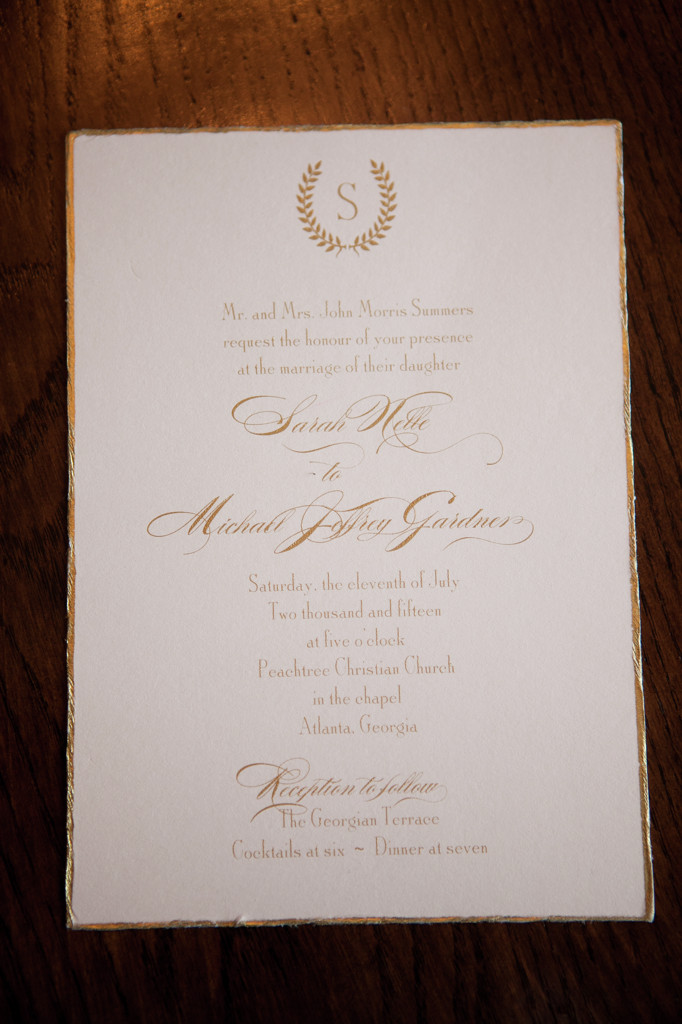 S
Mr. and Mrs. John Morris Summers
request the honour of your presence
at the marriage of their daughter
Sarah Nelle
to
Michael Jeffrey Gardner
Saturday, the eleventh of July
Two thousand and fifteen
at five o'clock
Peachtree Christian Church
in the chapel
Atlanta, Georgia
Reception to follow
The Georgian Terrace
Cocktails at six ~ Dinner at seven